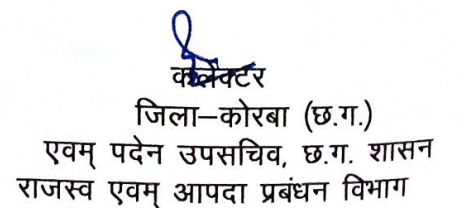 कलेक्टर
जिला–कोरबा (छ.ग.)
एवम् पदेन उपसचिव, छ.ग. शासन
राजस्व एवम् आपदा प्रबंधन विभाग